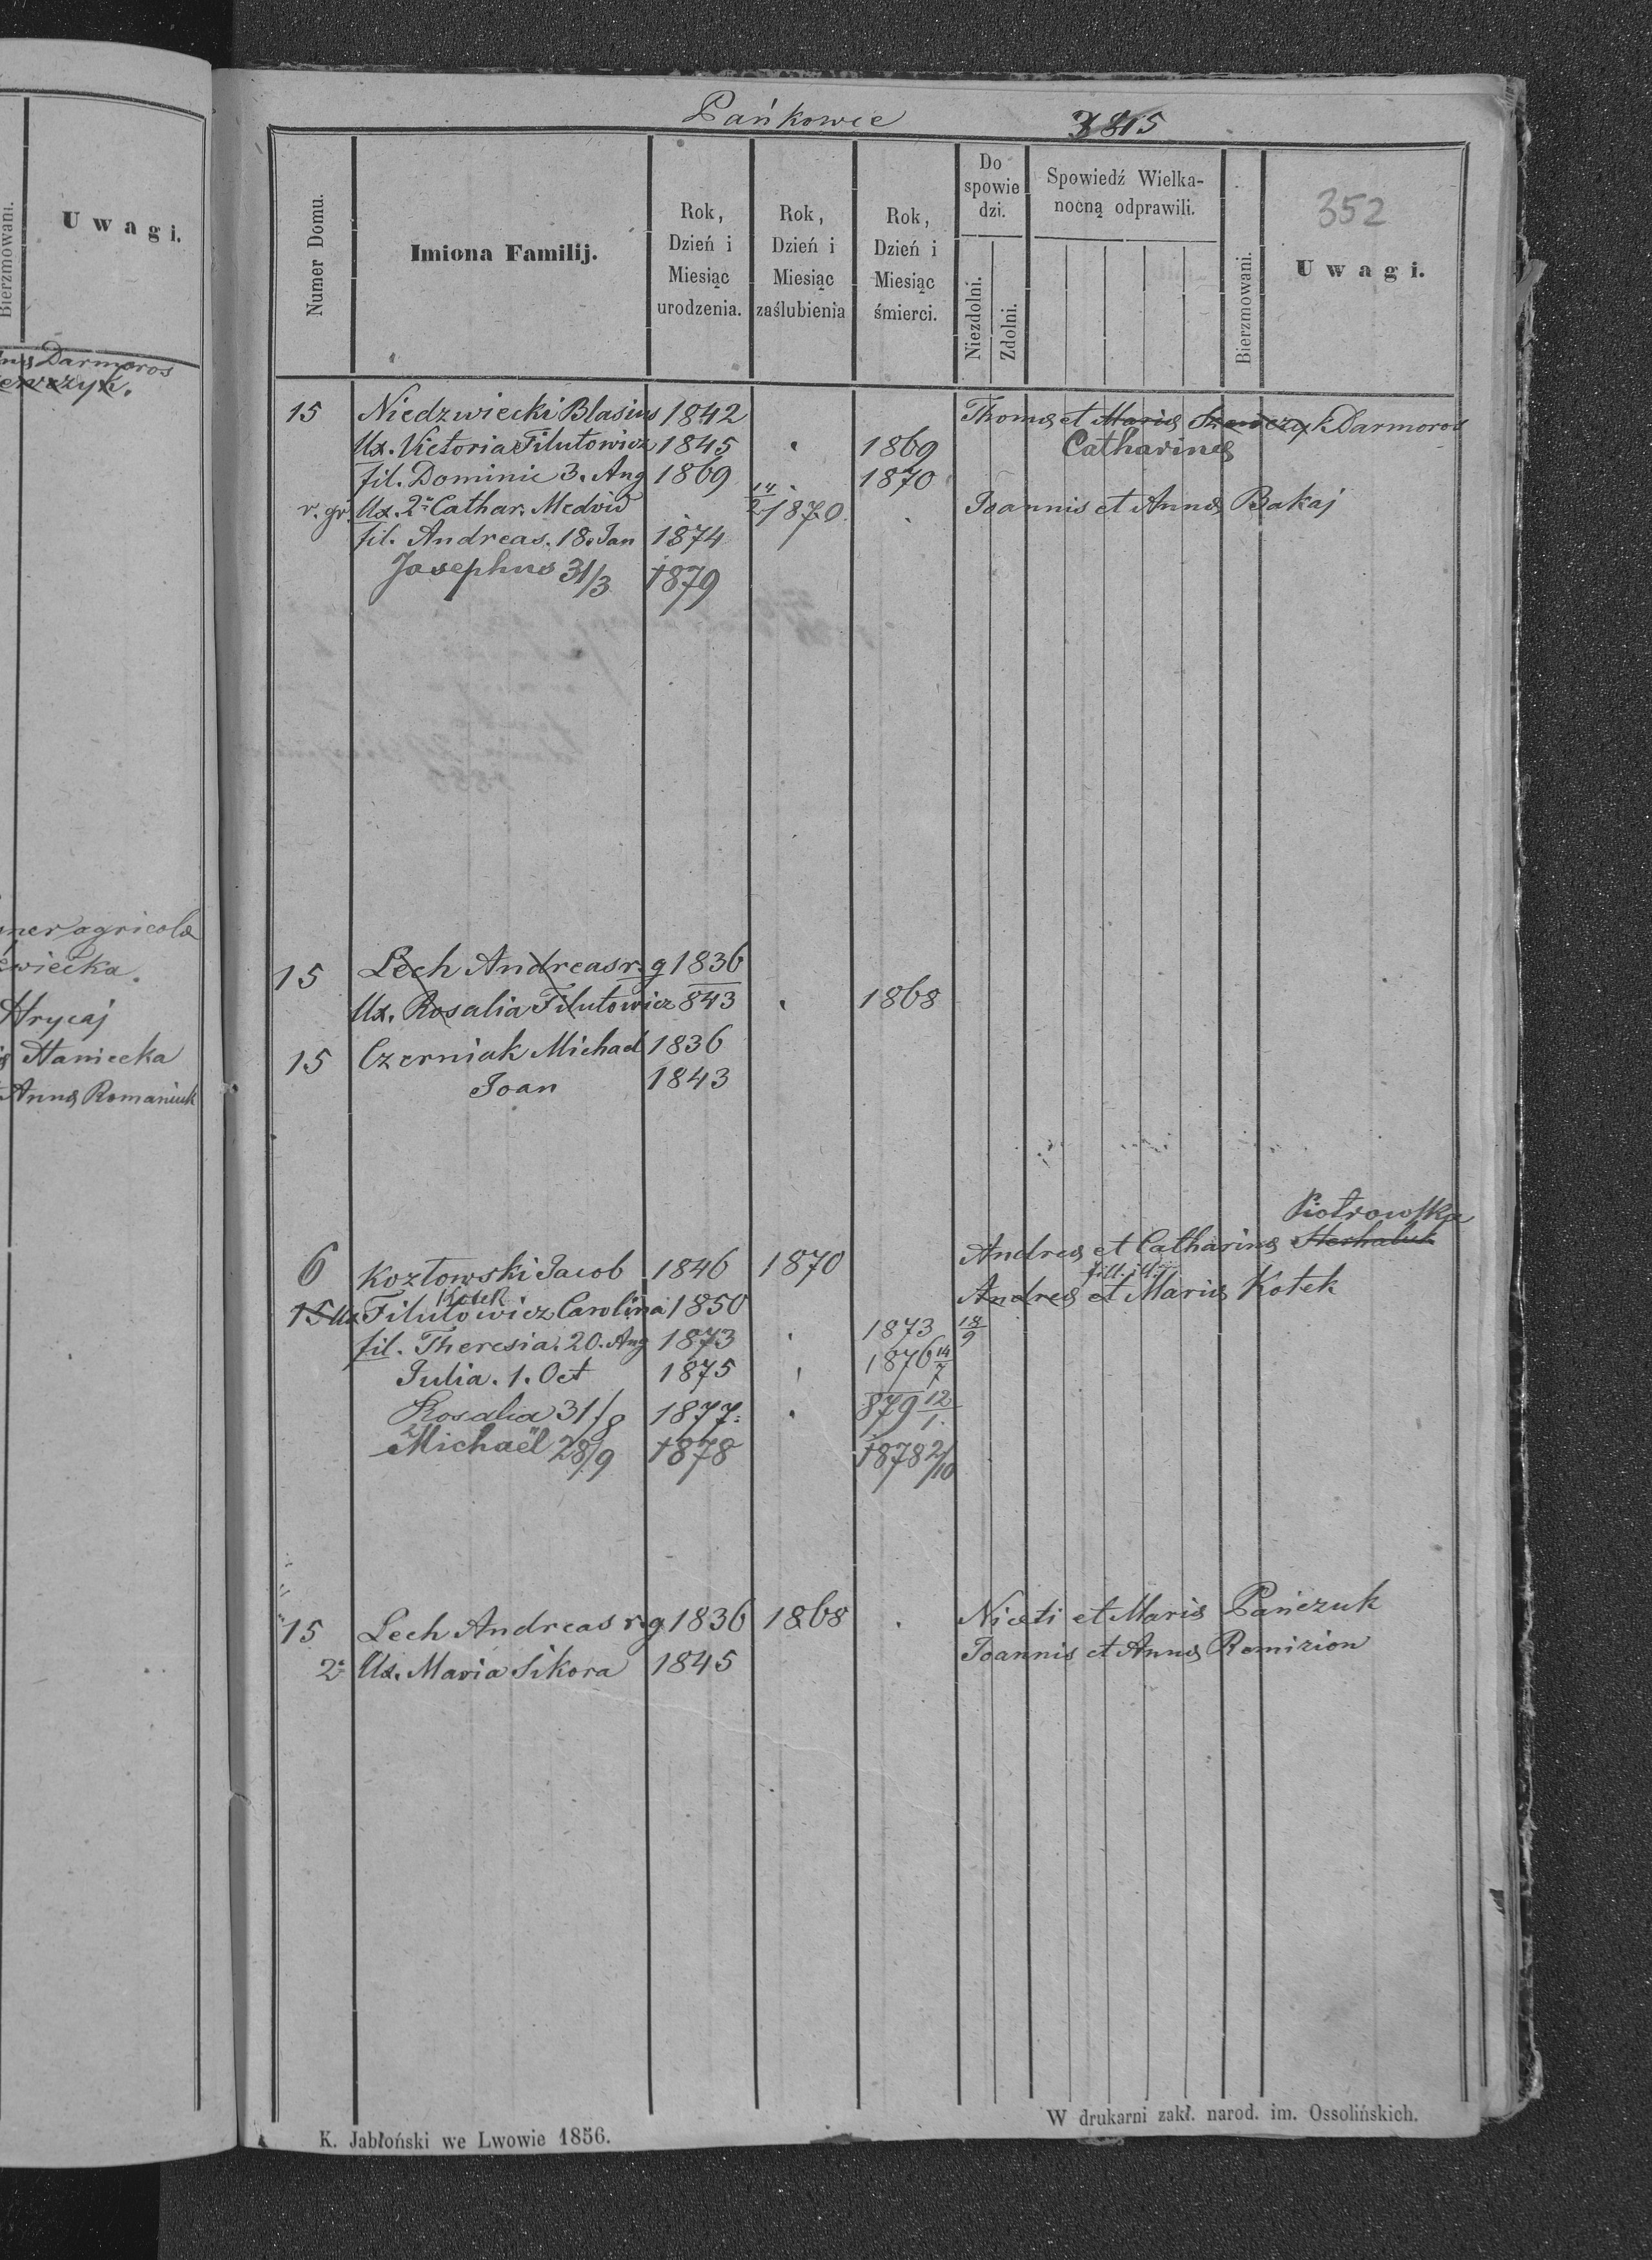 Uwagi.
Bierzmowani.
Darmoros
agricola
Hrycaj
Haniecka
Annæ Romaniuk
Pańkowce 3815
352
Numer Domu.
Imiona Familij.
Rok, Dzień i Miesiąc urodzenia.
Rok, Dzień i Miesiąc zaślubienia
Rok, Dzień i Miesiąc śmierci.
Do spowiedzi.
Niezdolni.
Zdolni.
Spowiedź Wielkanocną odprawili.
Bierzmowani.
Uwagi.
15 Niedzwiecki Blasius 1842 Thomæ et Mariæ Szewczyk Darmoros
Ux. Victoria Filutowicz 1845 1869 Catharinæ
fil. Dominic 3. Aug 1869 1870
r. gr. Ux. 2ª Cathar. Medvid 14/2 1870 Joannis et Annæ Bakaj
fil. Andreas. 18. Jan 1874
Josephus 31/3 1879
15 Lech Andreas r. g 1836
Ux. Rosalia Filutowicz 843 1868
15 Czerniak Michael 1836
Joan 1843
Piotrowska
6 Kozłowski Jacob 1846 1870 Andreæ et Catharinæ
Kotek
15 Ux Filutowicz Carolina 1850 Andreæ et Mariæ Kotek
fil. Theresia. 20. Aug 1873 1873 18/9
Julia. 1. Oct 1875 1876 14/7
Rosalia 31/8 1877. 879 12/1.
Michaël 28/9 1878 1878 2/10
15 Lech Andreas r. g 1836 1868 Niceti et Mariæ Pańczuk
2ª Ux. Maria Sikora 1845 Joannis et Annæ Romizion
K. Jabłoński we Lwowie 1856.
W drukarni zakł. narod. im. Ossolińskich.